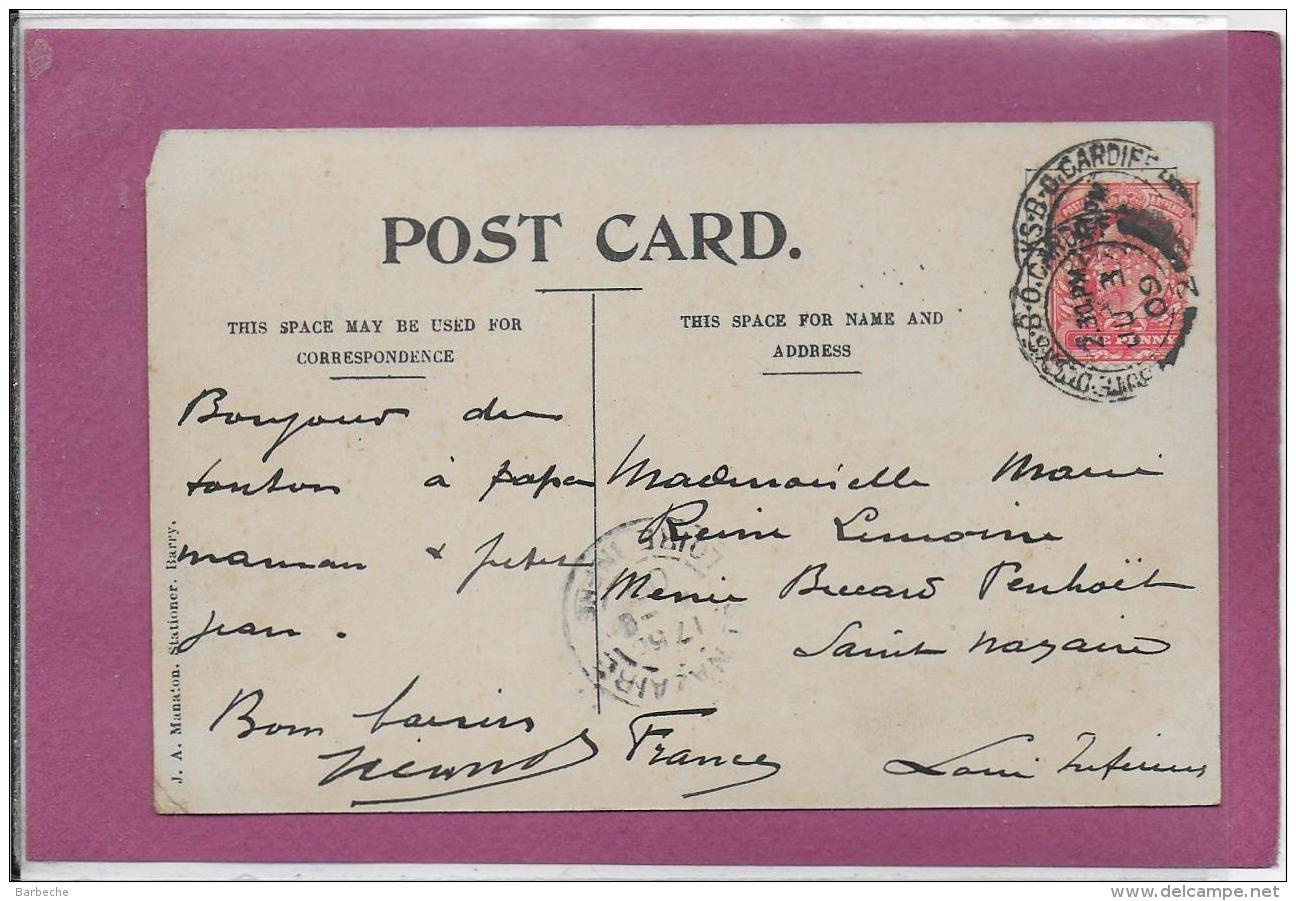 POST CARD.
THIS SPACE MAY BE USED FOR
CORRESPONDENCE
THIS SPACE FOR NAME AND
ADDRESS
Bonjour du
tonton à papa
maman + petit
jean.
Bons baisers
Mademoiselle Marie
Reine Lemoine
Penhoët
Saint Nazaire
France
Loire Inférieure
J. A. Manaton. Stationer. Barry.
BUTE DOCKS B.O. CARDIFF
2.30PM
09
ONE PENNY
ST NAZAIRE
LOIRE INFRE
Barbeche
delcampe.net